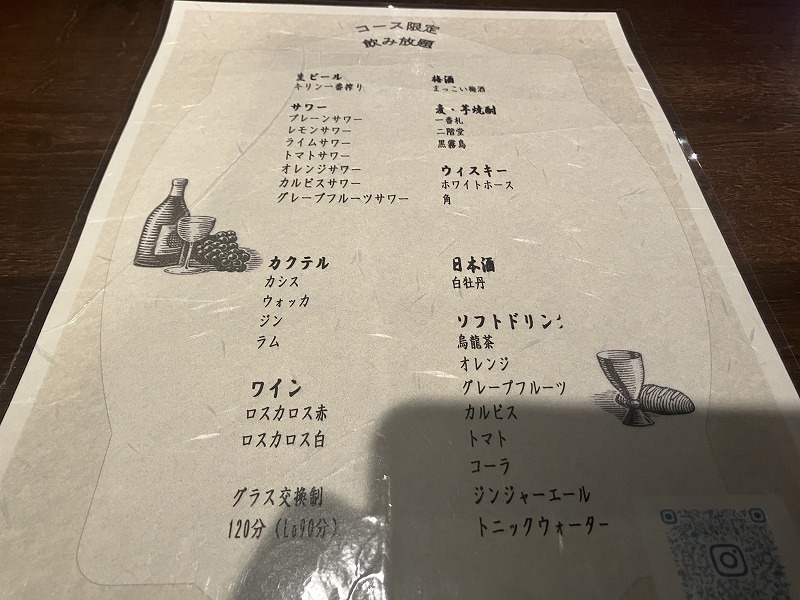 コース限定
飲み放題
生ビール
キリン一番搾り
サワー
プレーンサワー
レモンサワー
ライムサワー
トマトサワー
オレンジサワー
カルピスサワー
グレープフルーツサワー
カクテル
カシス
ウォッカ
ジン
ラム
ワイン
ロスカロス赤
ロスカロス白
グラス交換制
120分（Lo90分）
梅酒
まっこい梅酒
麦・芋焼酎
一番札
二階堂
黒霧島
ウィスキー
ホワイトホース
角
日本酒
白牡丹
ソフトドリンク
烏龍茶
オレンジ
グレープフルーツ
カルピス
トマト
コーラ
ジンジャーエール
トニックウォーター